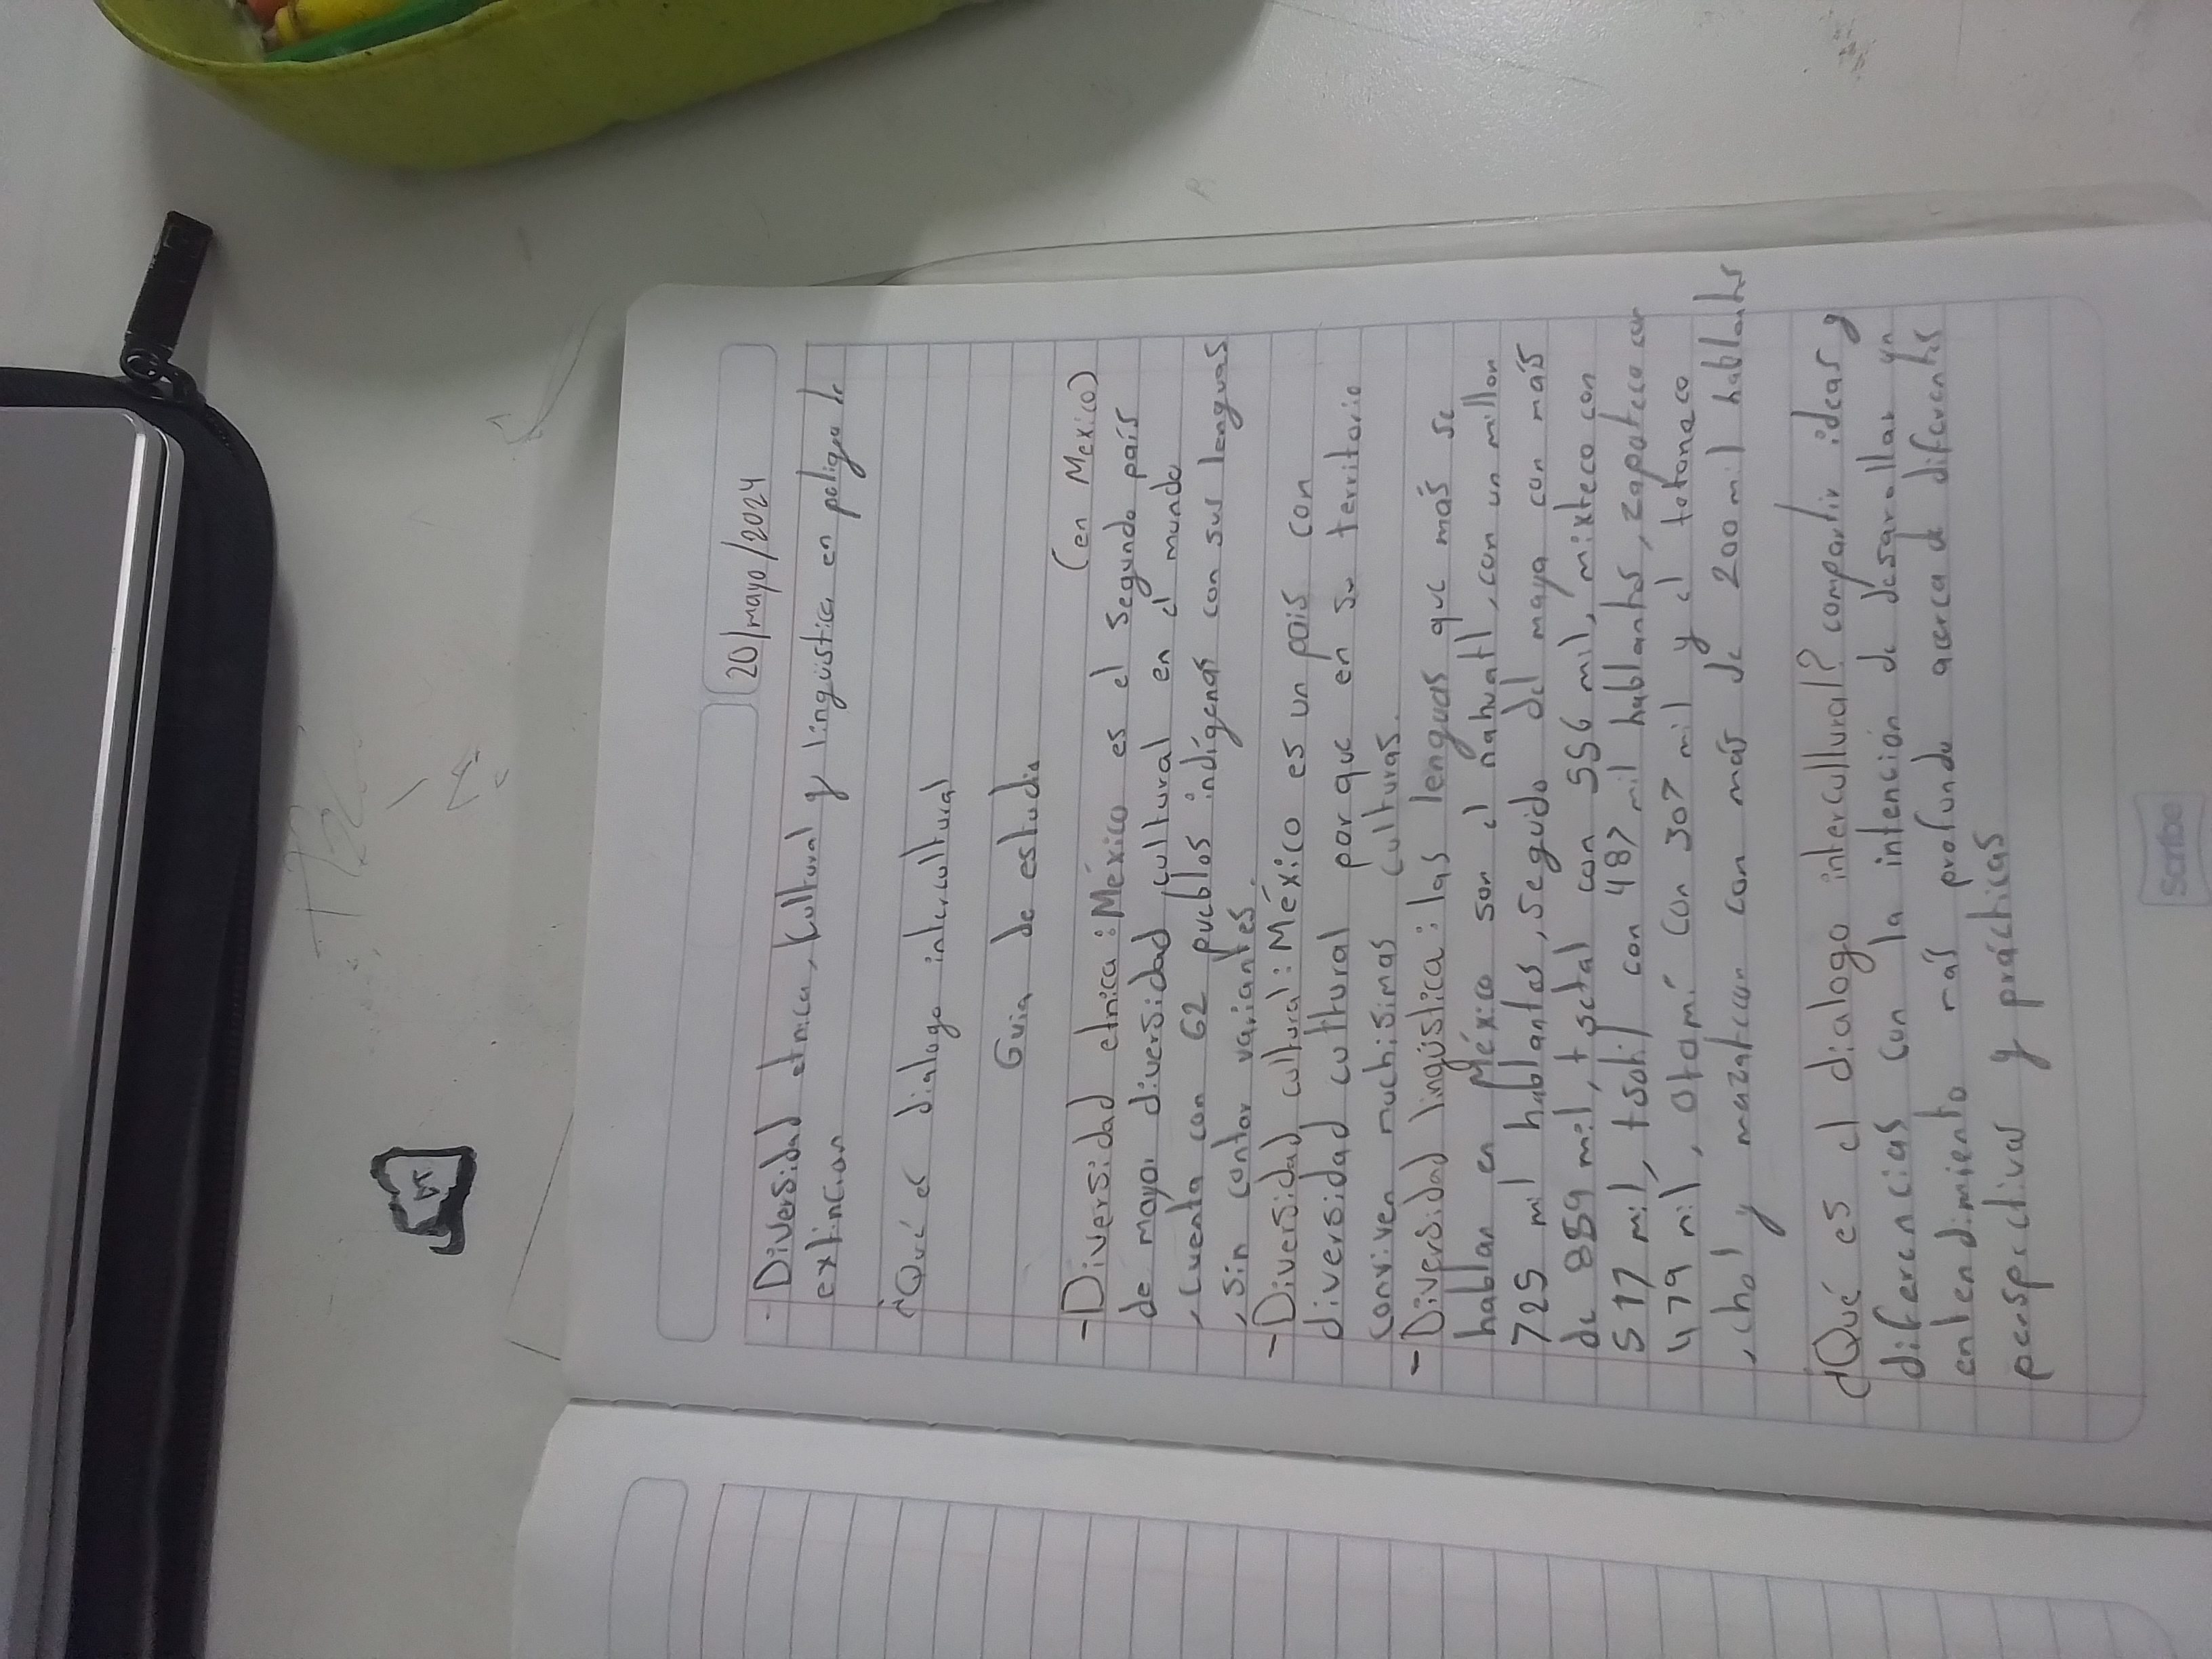 20/mayo/2024
- Diversidad etnica, cultural y lingüistica en peligro de
extincion
¿Qué es dialogo intercultural
Guia de estudio
(en Mexico)
- Diversidad etnica: México es el segundo país
de mayor diversidad cultural en el mundo
, cuenta con 62 pueblos indígenas con sus lenguas
, sin contar variantes.
- Diversidad cultural: México es un país con
diversidad cultural porque en su territorio
conviven muchisimas culturas.
- Diversidad lingüistica: las lenguas que más se
hablan en México son el nahuatl, con un millon
725 mil hablantes, seguido del maya con más
de 859 mil, tsetal con 556 mil, mixteco con
517 mil, tsotil con 487 mil hablantes, zapoteco con
479 mil, otomí con 307 mil y el totonaco
, chol y mazateco con más de 200 mil hablantes
¿Qué es el dialogo intercultural? compartir ideas y
diferencias con la intención de desarollar un
entendimiento más profundo acerca de diferentes
perspectivas y prácticas
Scribe